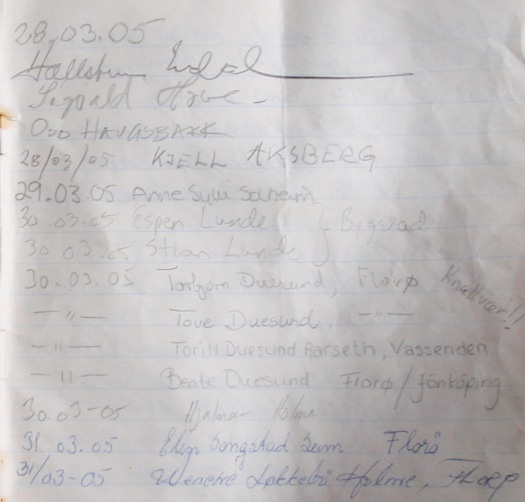 28.03.05
Hallstein
Sigvald Hove
Odd HAUGSBAKK
28/03/05 KJELL AKSBERG
29.03.05 Anne Sylvi Solheim
30.03.05 Espen Lunde } Bygstad
30 03.05 Stian Lunde
30.03.05 Torbjørn Duesund, Florø Knallvær!!
— " — Tove Duesund, — " —
— " — Torill Duesund Aarseth, Vassenden
— " — Beate Duesund Florø / Jönköping
30.03-05 Hjalmar Holme
31.03.05 Elin Florö
31/03-05 Wenche Løkkebø Holme, FLORØ